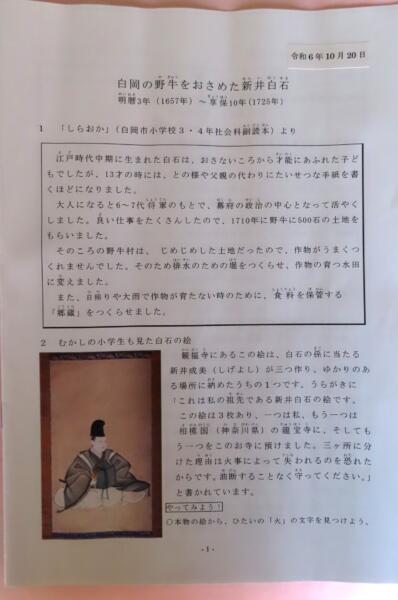 令和6年10月20日
白岡の野牛をおさめた新井白石
明暦3年（1657年）～享保10年(1725年）
1 「しらおか」（白岡市小学校3・4年社会科副読本）より
江戸時代中期に生まれた白石は、おさないころから才能にあふれた子ど
もでしたが、13才の時には、との様や父親の代わりにたいせつな手紙を書
くほどになりました。
大人になると6～7代将軍のもとで、幕府の政治の中心となって活やく
しました。良い仕事をたくさんしたので、1710年に野牛に500石の土地を
もらいました。
そのころの野牛村は、じめじめした土地だったので、作物がうまくつ
くれませんでした。そのため排水のための堀をつくらせ、作物の育つ水田
に変えました。
また、日照りや大雨で作物が育たない時のために、食料を保管する
「郷蔵」をつくらせました。
2 むかしの小学生も見た白石の絵
観福寺にあるこの絵は、白石の孫に当たる
新井成美（しげよし）が三つ作り、ゆかりのあ
る場所に納めたうちの1つです。うらがきに
「これは私の祖先である新井白石の絵です。
この絵は3枚あり、一つは私、もう一つは
相模国（神奈川県）の龍宝寺に、そしても
う一つをこのお寺に預けました。三ヶ所に分
けた理由は火事によって失われるのを恐れた
からです。油断することなく守ってください。」
と書かれています。
やってみよう！
○本物の絵から、ひたいの「火」の文字を見つけよう。
-1-